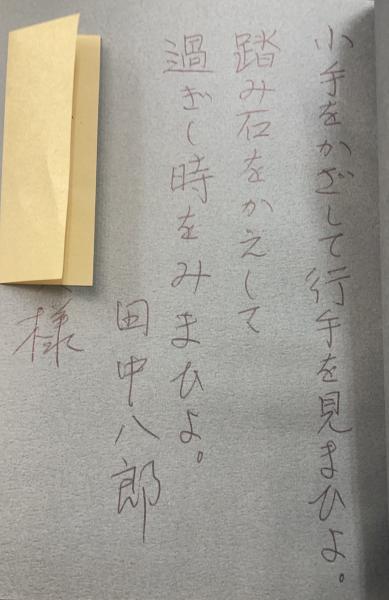 小手をかざして行手を見まひよ。
踏み石をかえして
過ぎし時をみまひよ。
田中八郎
様